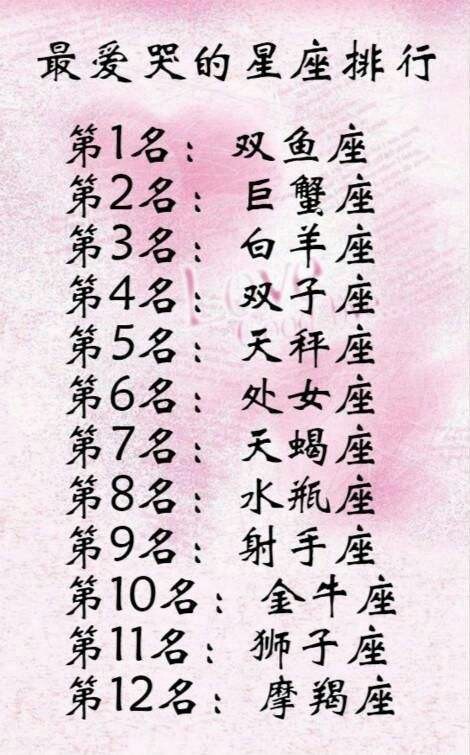 最爱哭的星座排行
第1名：双鱼座
第2名：巨蟹座
第3名：白羊座
第4名：双子座
第5名：天秤座
第6名：处女座
第7名：天蝎座
第8名：水瓶座
第9名：射手座
第10名：金牛座
第11名：狮子座
第12名：摩羯座